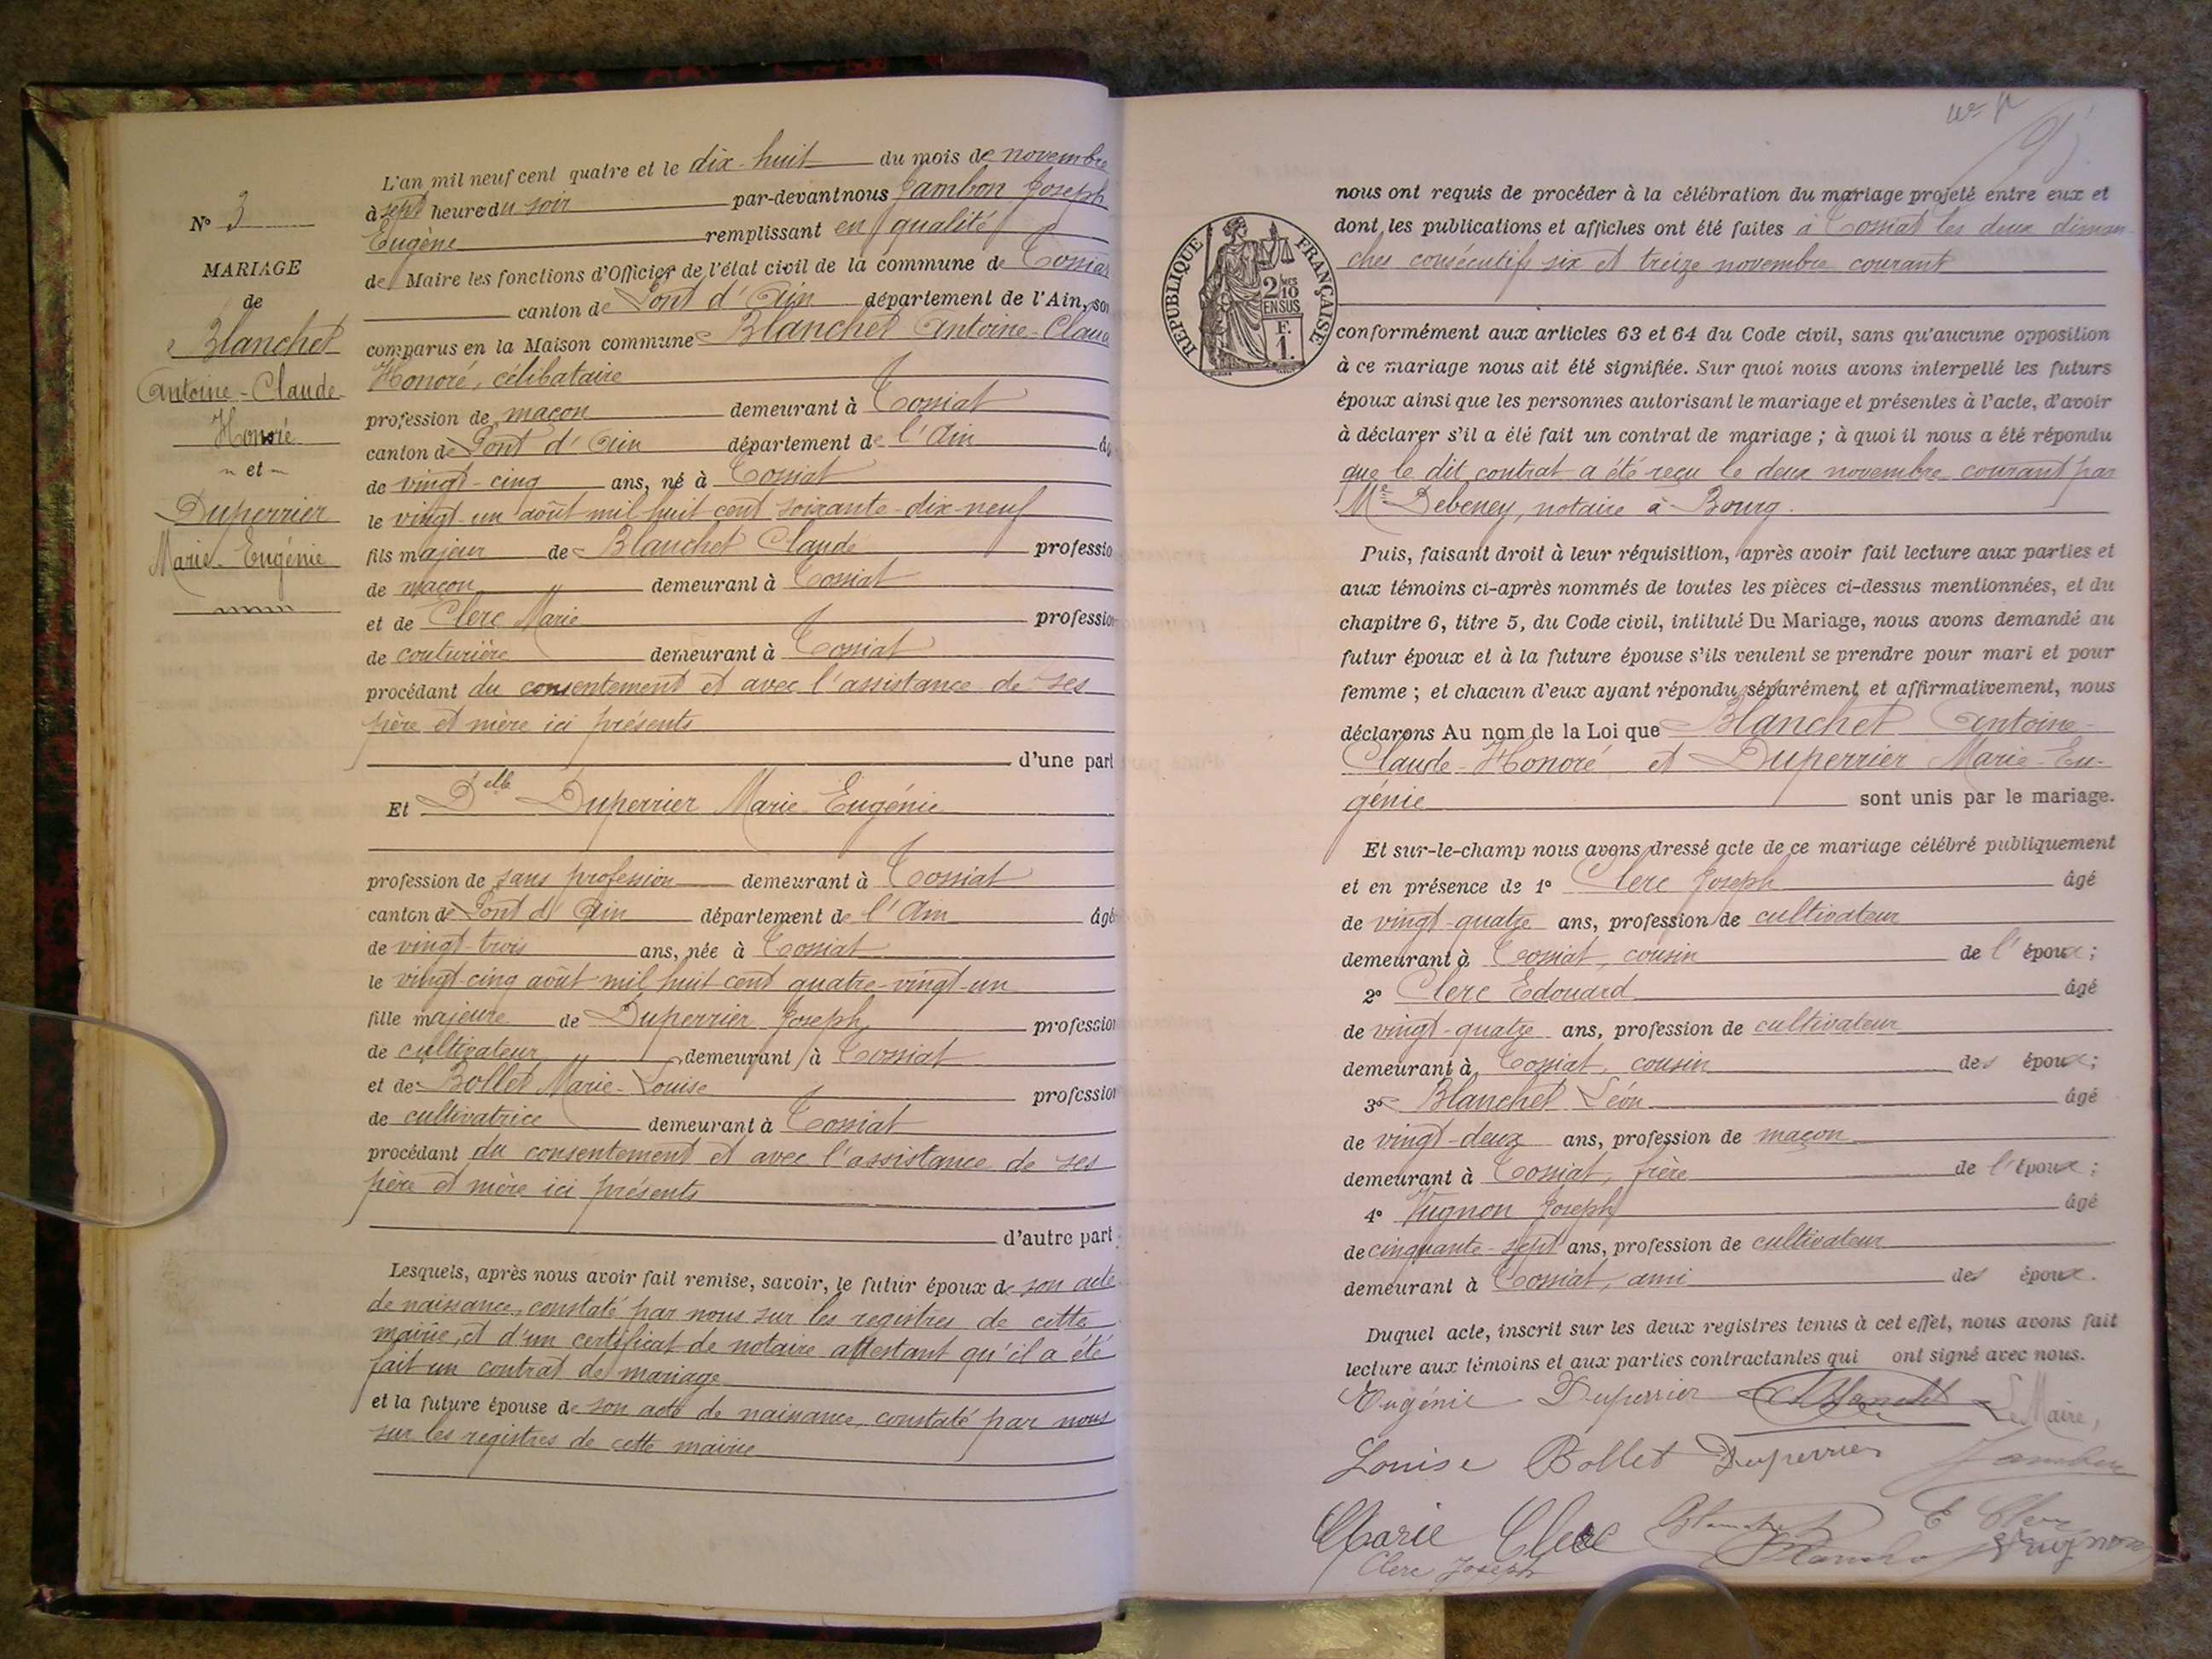 N° 3
MARIAGE
de
Blanchet
Antoine-Claude-
Honoré
et
Duperrier
Marie-Eugénie
L'an mil neuf cent quatre et le dix-huit du mois de novembre
à sept heure du soir par-devant nous Jambon Joseph
Eugène remplissant en qualité
de Maire les fonctions d'Officier de l'état civil de la commune de Tossiat
canton de Pont d'Ain département de l'Ain, so
comparus en la Maison commune Blanchet Antoine-Claud
Honoré, célibataire
profession de maçon demeurant à Tossiat
canton de Pont d'Ain département de l'Ain âg
de vingt-cinq ans, né à Tossiat
le vingt-un août mil huit cent soixante-dix-neuf
fils majeur de Blanchet Claude professio
de maçon demeurant à Tossiat
et de Clerc Marie profession
de couturière demeurant à Tossiat
procédant du consentement et avec l'assistance de ses
père et mère ici présents
d'une part
Et Delle Duperrier Marie-Eugénie
profession de sans profession demeurant à Tossiat
canton de Pont d'Ain département de l'Ain âgé
de vingt-trois ans, née à Tossiat
le vingt-cinq août mil huit cent quatre-vingt-un
fille majeure de Duperrier Joseph profession
de cultivateur demeurant à Tossiat
et de Bollet Marie-Louise profession
de cultivatrice demeurant à Tossiat
procédant du consentement et avec l'assistance de ses
père et mère ici présents
d'autre part ;
Lesquels, après nous avoir fait remise, savoir, le futur époux de son acte
de naissance, constaté par nous sur les registres de cette
mairie, et d'un certificat de notaire attestant qu'il a été
fait un contrat de mariage
et la future épouse de son acte de naissance, constaté par nous
sur les registres de cette mairie
nous ont requis de procéder à la célébration du mariage projeté entre eux et
dont les publications et affiches ont été faites à Tossiat les deux diman-
ches consécutifs six et treize novembre courant
RÉPUBLIQUE FRANÇAISE
2 MES
10
EN SUS
F.
1.
conformément aux articles 63 et 64 du Code civil, sans qu'aucune opposition
à ce mariage nous ait été signifiée. Sur quoi nous avons interpellé les futurs
époux ainsi que les personnes autorisant le mariage et présentes à l'acte, d'avoir
à déclarer s'il a été fait un contrat de mariage ; à quoi il nous a été répondu
que le dit contrat a été reçu le deux novembre courant par
Me Debeney, notaire à Bourg.
Puis, faisant droit à leur réquisition, après avoir fait lecture aux parties et
aux témoins ci-après nommés de toutes les pièces ci-dessus mentionnées, et du
chapitre 6, titre 5, du Code civil, intitulé Du Mariage, nous avons demandé au
futur époux et à la future épouse s'ils veulent se prendre pour mari et pour
femme ; et chacun d'eux ayant répondu séparément et affirmativement, nous
déclarons Au nom de la Loi que Blanchet Antoine-
Claude-Honoré et Duperrier Marie-Eu-
génie sont unis par le mariage.
Et sur-le-champ nous avons dressé acte de ce mariage célébré publiquement
et en présence de 1° Clerc Joseph âgé
de vingt-quatre ans, profession de cultivateur
demeurant à Tossiat, cousin de l'époux ;
2° Clerc Edouard âgé
de vingt-quatre ans, profession de cultivateur
demeurant à Tossiat, cousin des époux ;
3° Blanchet Léon âgé
de vingt-deux ans, profession de maçon
demeurant à Tossiat, frère de l'époux ;
4° Vugnon Joseph âgé
de cinquante-sept ans, profession de cultivateur
demeurant à Tossiat, ami des époux.
Duquel acte, inscrit sur les deux registres tenus à cet effet, nous avons fait
lecture aux témoins et aux parties contractantes qui ont signé avec nous.
Eugénie Duperrier Blanchet Le Maire,
Louise Bollet Duperrier Jambon
Marie Clerc Blanchet E Clerc
Clerc Joseph Blanchet Vugnon